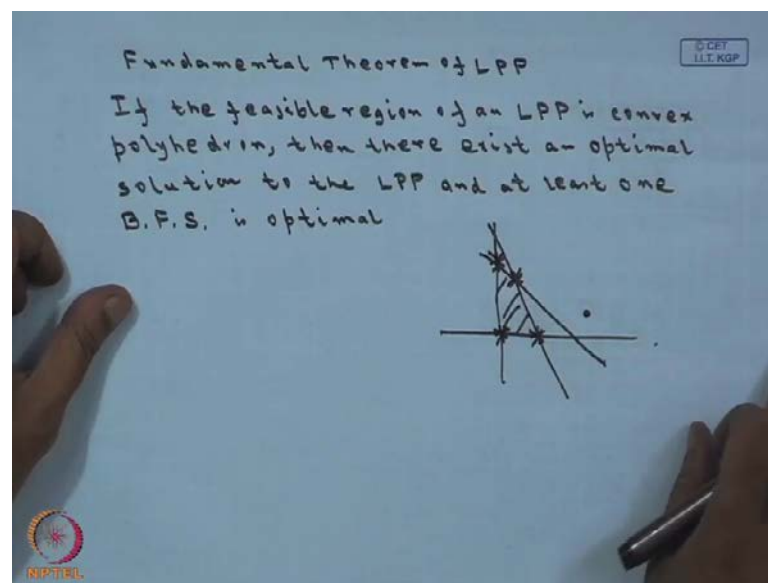 Fundamental Theorem of LPP
© CET
I.I.T. KGP
If the feasible region of an LPP is convex
polyhedron, then there exist an optimal
solution to the LPP and at least one
B.F.S. is optimal
NPTEL